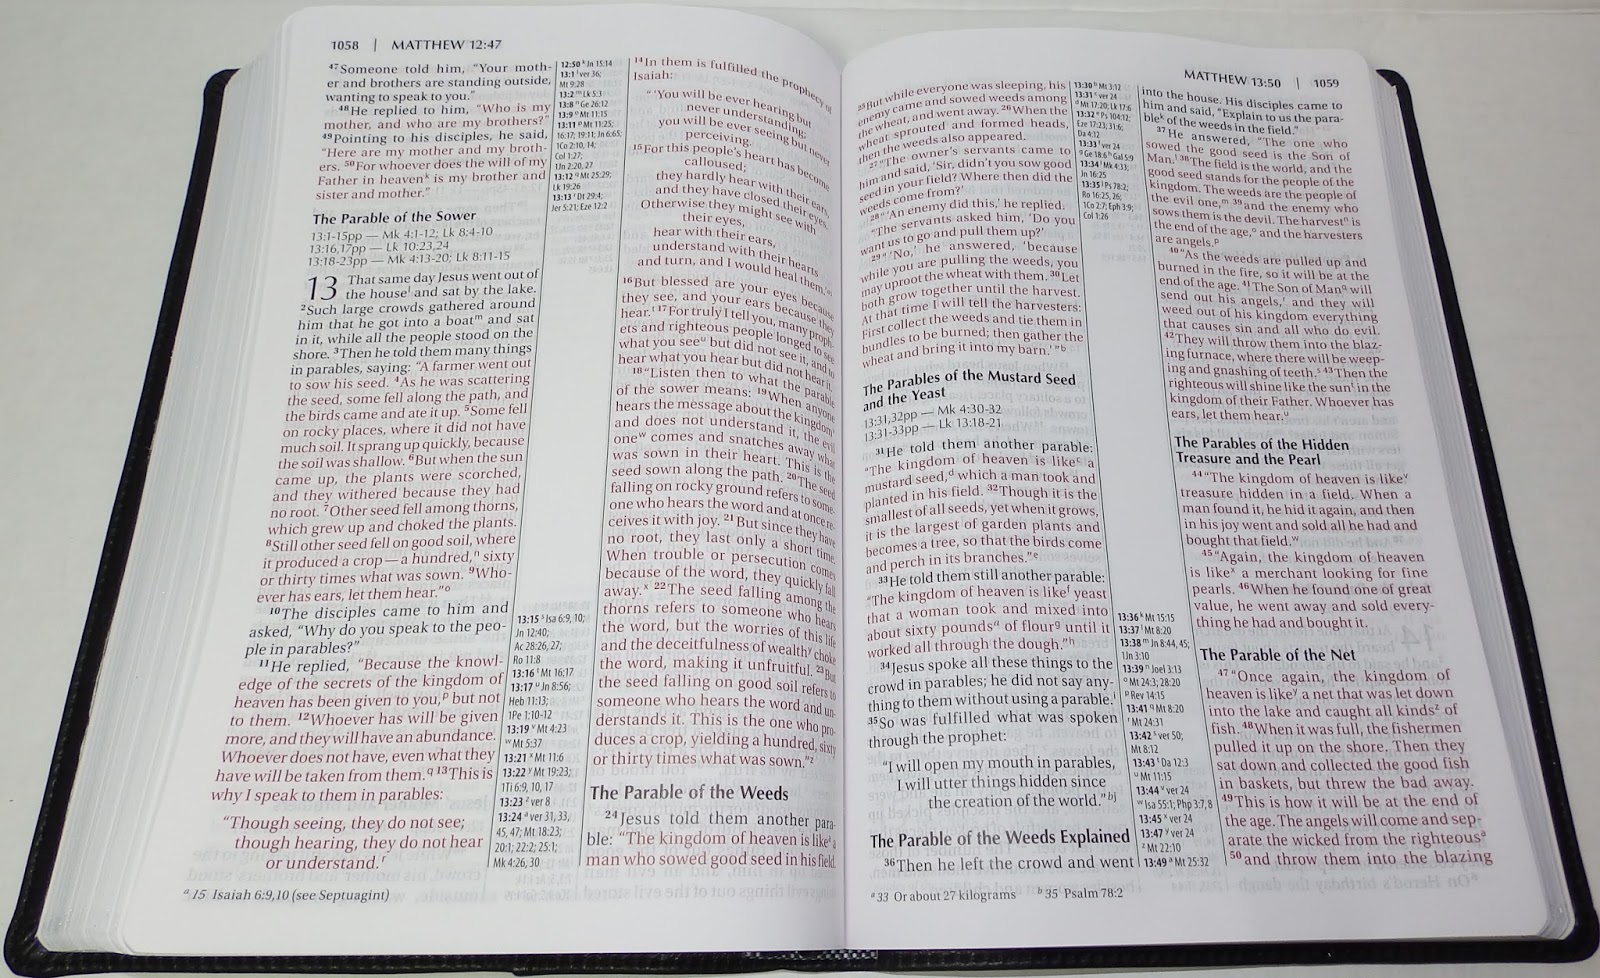 1058 | MATTHEW 12:47
47Someone told him, “Your moth-
er and brothers are standing outside,
wanting to speak to you.”
48He replied to him, “Who is my
mother, and who are my brothers?”
49Pointing to his disciples, he said,
“Here are my mother and my broth-
ers. 50For whoever does the will of my
Father in heavenk is my brother and
sister and mother.”
The Parable of the Sower
13:1-15pp — Mk 4:1-12; Lk 8:4-10
13:16,17pp — Lk 10:23,24
13:18-23pp — Mk 4:13-20; Lk 8:11-15
13 That same day Jesus went out of
the housel and sat by the lake.
2Such large crowds gathered around
him that he got into a boatm and sat
in it, while all the people stood on the
shore. 3Then he told them many things
in parables, saying: “A farmer went out
to sow his seed. 4As he was scattering
the seed, some fell along the path, and
the birds came and ate it up. 5Some fell
on rocky places, where it did not have
much soil. It sprang up quickly, because
the soil was shallow. 6But when the sun
came up, the plants were scorched,
and they withered because they had
no root. 7Other seed fell among thorns,
which grew up and choked the plants.
8Still other seed fell on good soil, where
it produced a crop — a hundred,n sixty
or thirty times what was sown. 9Who-
ever has ears, let them hear.”o
10The disciples came to him and
asked, “Why do you speak to the peo-
ple in parables?”
11He replied, “Because the knowl-
edge of the secrets of the kingdom of
heaven has been given to you,p but not
to them. 12Whoever has will be given
more, and they will have an abundance.
Whoever does not have, even what they
have will be taken from them.q 13This is
why I speak to them in parables:
“Though seeing, they do not see;
though hearing, they do not hear
or understand.r
12:50 k Jn 15:14
13:1 l ver 36;
Mt 9:28
13:2 m Lk 5:3
13:8 n Ge 26:12
13:9 o Mt 11:15
13:11 p Mt 11:25;
16:17; 19:11; Jn 6:65;
1Co 2:10, 14;
Col 1:27;
1Jn 2:20, 27
13:12 q Mt 25:29;
Lk 19:26
13:13 r Dt 29:4;
Jer 5:21; Eze 12:2
13:15 s Isa 6:9, 10;
Jn 12:40;
Ac 28:26, 27;
Ro 11:8
13:16 t Mt 16:17
13:17 u Jn 8:56;
Heb 11:13;
1Pe 1:10-12
13:19 v Mt 4:23
w Mt 5:37
13:21 x Mt 11:6
13:22 y Mt 19:23;
1Ti 6:9, 10, 17
13:23 z ver 8
13:24 a ver 31, 33,
45, 47; Mt 18:23;
20:1; 22:2; 25:1;
Mk 4:26, 30
14In them is fulfilled the prophecy of
Isaiah:
“ ‘You will be ever hearing but
never understanding;
you will be ever seeing but never
perceiving.
15For this people’s heart has become
calloused;
they hardly hear with their ears,
and they have closed their eyes.
Otherwise they might see with
their eyes,
hear with their ears,
understand with their hearts
and turn, and I would heal them.’
16But blessed are your eyes because
they see, and your ears because they
hear.t 17For truly I tell you, many proph-
ets and righteous people longed to see
what you seeu but did not see it, and to
hear what you hear but did not hear it.
18“Listen then to what the parable
of the sower means: 19When anyone
hears the message about the kingdomv
and does not understand it, the evil
onew comes and snatches away what
was sown in their heart. This is the
seed sown along the path. 20The seed
falling on rocky ground refers to some-
one who hears the word and at once re-
ceives it with joy. 21But since they have
no root, they last only a short time.
When trouble or persecution comes
because of the word, they quickly fall
away.x 22The seed falling among the
thorns refers to someone who hears
the word, but the worries of this life
and the deceitfulness of wealthy choke
the word, making it unfruitful. 23But
the seed falling on good soil refers to
someone who hears the word and un-
derstands it. This is the one who pro-
duces a crop, yielding a hundred, sixty
or thirty times what was sown.”z
The Parable of the Weeds
24Jesus told them another para-
ble: “The kingdom of heaven is likea a
man who sowed good seed in his field.
a 15 Isaiah 6:9,10 (see Septuagint)
MATTHEW 13:50 | 1059
25But while everyone was sleeping, his
enemy came and sowed weeds among
the wheat, and went away. 26When the
wheat sprouted and formed heads,
then the weeds also appeared.
27“The owner’s servants came to
him and said, ‘Sir, didn’t you sow good
seed in your field? Where then did the
weeds come from?’
28“ ‘An enemy did this,’ he replied.
“The servants asked him, ‘Do you
want us to go and pull them up?’
29“ ‘No,’ he answered, ‘because
while you are pulling the weeds, you
may uproot the wheat with them. 30Let
both grow together until the harvest.
At that time I will tell the harvesters:
First collect the weeds and tie them in
bundles to be burned; then gather the
wheat and bring it into my barn.’ ”b
The Parables of the Mustard Seed
and the Yeast
13:31,32pp — Mk 4:30-32
13:31-33pp — Lk 13:18-21
31He told them another parable:
“The kingdom of heaven is likec a
mustard seed,d which a man took and
planted in his field. 32Though it is the
smallest of all seeds, yet when it grows,
it is the largest of garden plants and
becomes a tree, so that the birds come
and perch in its branches.”e
33He told them still another parable:
“The kingdom of heaven is likef yeast
that a woman took and mixed into
about sixty poundsa of flourg until it
worked all through the dough.”h
34Jesus spoke all these things to the
crowd in parables; he did not say any-
thing to them without using a parable.i
35So was fulfilled what was spoken
through the prophet:
“I will open my mouth in parables,
I will utter things hidden since
the creation of the world.”b j
The Parable of the Weeds Explained
36Then he left the crowd and went
13:30 b Mt 3:12
13:31 c ver 24
d Mt 17:20; Lk 17:6
13:32 e Ps 104:12;
Eze 17:23; 31:6;
Da 4:12
13:33 f ver 24
g Ge 18:6 h Gal 5:9
13:34 i Mk 4:33;
Jn 16:25
13:35 j Ps 78:2;
Ro 16:25, 26;
1Co 2:7; Eph 3:9;
Col 1:26
13:36 k Mt 15:15
13:37 l Mt 8:20
13:38 m Jn 8:44, 45;
1Jn 3:10
13:39 n Joel 3:13
o Mt 24:3; 28:20
p Rev 14:15
13:41 q Mt 8:20
r Mt 24:31
13:42 s ver 50;
Mt 8:12
13:43 t Da 12:3
u Mt 11:15
13:44 v ver 24
w Isa 55:1; Php 3:7, 8
13:45 x ver 24
13:47 y ver 24
z Mt 22:10
13:49 a Mt 25:32
into the house. His disciples came to
him and said, “Explain to us the para-
blek of the weeds in the field.”
37He answered, “The one who
sowed the good seed is the Son of
Man.l 38The field is the world, and the
good seed stands for the people of the
kingdom. The weeds are the people of
the evil one,m 39and the enemy who
sows them is the devil. The harvestn is
the end of the age,o and the harvesters
are angels.p
40“As the weeds are pulled up and
burned in the fire, so it will be at the
end of the age. 41The Son of Manq will
send out his angels,r and they will
weed out of his kingdom everything
that causes sin and all who do evil.
42They will throw them into the blaz-
ing furnace, where there will be weep-
ing and gnashing of teeth.s 43Then the
righteous will shine like the sunt in the
kingdom of their Father. Whoever has
ears, let them hear.u
The Parables of the Hidden
Treasure and the Pearl
44“The kingdom of heaven is likev
treasure hidden in a field. When a
man found it, he hid it again, and then
in his joy went and sold all he had and
bought that field.w
45“Again, the kingdom of heaven
is likex a merchant looking for fine
pearls. 46When he found one of great
value, he went away and sold every-
thing he had and bought it.
The Parable of the Net
47“Once again, the kingdom of
heaven is likey a net that was let down
into the lake and caught all kindsz of
fish. 48When it was full, the fishermen
pulled it up on the shore. Then they
sat down and collected the good fish
in baskets, but threw the bad away.
49This is how it will be at the end of
the age. The angels will come and sep-
arate the wicked from the righteousa
50and throw them into the blazing
a 33 Or about 27 kilograms b 35 Psalm 78:2